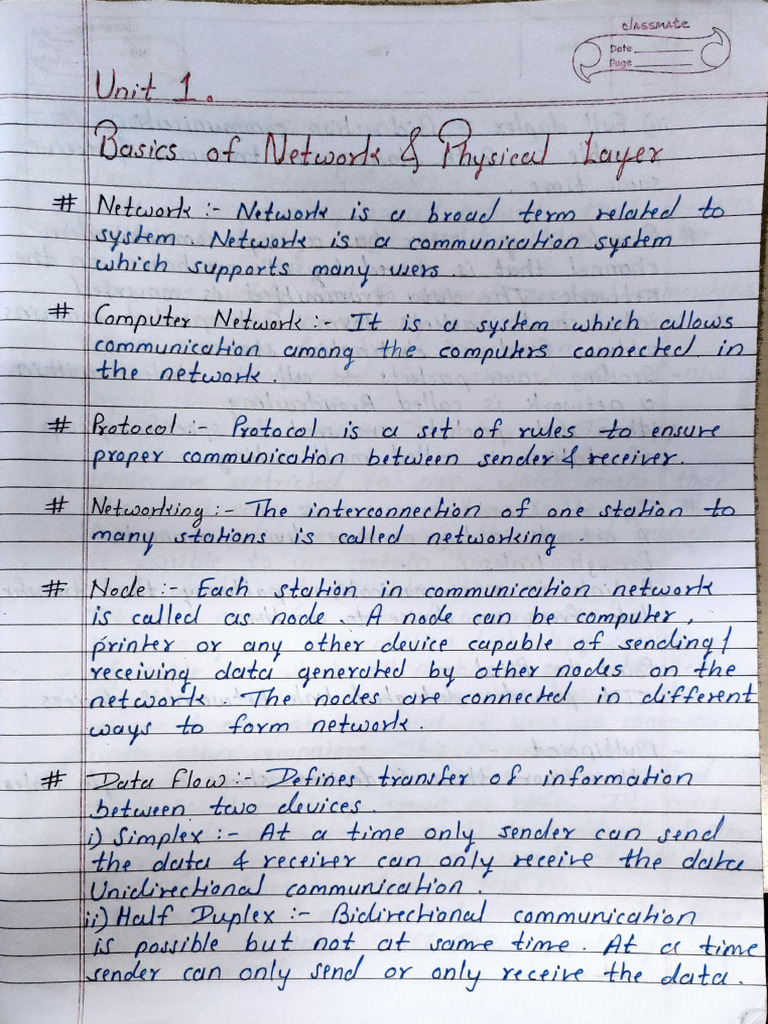 classmate
Date
Page
Unit 1.
Basics of Network & Physical Layer
# Network :- Network is a broad term related to
system. Network is a communication system
which supports many users
# Computer Network :- It is a system which allows
communication among the computers connected in
the network.
# Protocol :- Protocol is a set of rules to ensure
proper communication between sender & receiver.
# Networking :- The interconnection of one station to
many stations is called networking.
# Node :- Each station in communication network
is called as node. A node can be computer,
printer or any other device capable of sending/
receiving data generated by other nodes on the
network. The nodes are connected in different
ways to form network.
# Data flow :- Defines transfer of information
between two devices.
i) Simplex :- At a time only sender can send
the data & receiver can only receive the data
Unidirectional communication.
ii) Half Duplex :- Bidirectional communication
is possible but not at same time. At a time
sender can only send or only receive the data.